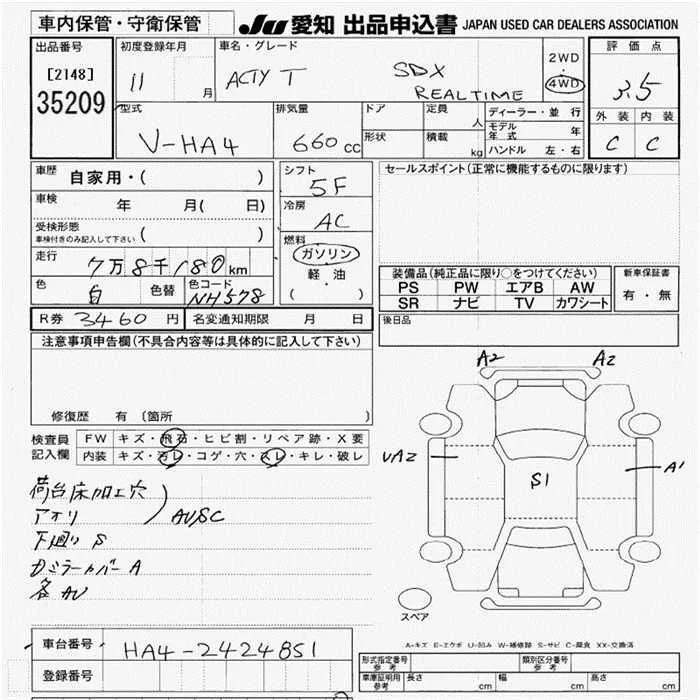 車内保管・守衛保管 JU 愛知 出品申込書 JAPAN USED CAR DEALERS ASSOCIATION
出品番号 初度登録年月 車名・グレード 2WD 評価点
[2148] 11 月 ACTY T SDX 4WD 3.5
35209 REALTIME 外装 内装
型式 排気量 ドア 定員 人 ディーラー・並行 C C
V-HA4 660cc 形状 積載 kg モデル年式 年
ハンドル 左・右
車歴 自家用・( ) シフト 5F セールスポイント(正常に機能するものに限ります)
車検 年 月( 日) 冷房 AC
受検形態 ( )
車検付きのみ記入して下さい
燃料 ガソリン
走行 7万8千180km 軽油 装備品(純正品に限り○をつけてください) 新車保証書
色 白 色替 色コード NH578 ( ・ ) PS PW エアB AW 有・無
SR ナビ TV カワシート
R券 3460円 名変通知期限 月 日 後日品
注意事項申告欄(不具合内容等は具体的に記入して下さい)
A2 A2
修復歴 有 〔箇所 〕
検査員 FW キズ・飛石・ヒビ割・リペア跡・X要
記入欄 内装 キズ・汚レ・コゲ・穴・スレ・キレ・破レ
UA2 S1 A1
荷台床加工穴
アオリ ) AUSC
下廻り S
ミラーカバー A
各AU
スペア
A-キズ E-エクボ U-凹み W-補修跡 S-サビ C-腐食 XX-交換済
車台番号 HA4-2424851
登録番号
形式指定番号 参考 類別区分番号 参考
車庫証明用 参考 長さ cm 幅 cm 高さ cm